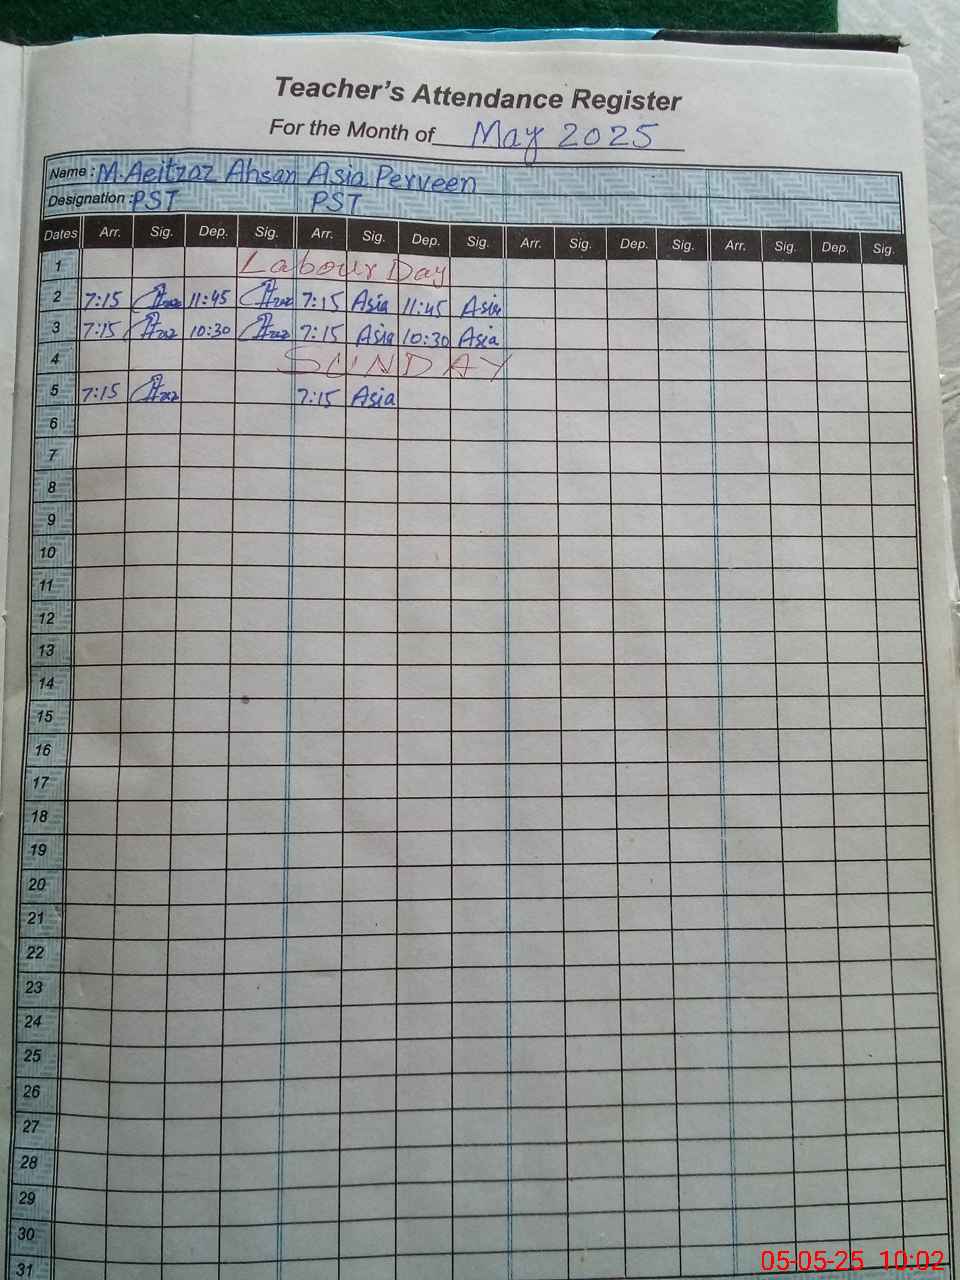 Teacher's Attendance Register
For the Month of May 2025
Name: M. Aeitzaz Ahsan Asia Perveen
Designation: PST PST
Dates Arr. Sig. Dep. Sig. Arr. Sig. Dep. Sig. Arr. Sig. Dep. Sig. Arr. Sig. Dep. Sig.
1 Labour Day
2 7:15 11:45 7:15 Asia 11:45 Asia
3 7:15 10:30 7:15 Asia 10:30 Asia
4 SUNDAY
5 7:15 7:15 Asia
6
7
8
9
10
11
12
13
14
15
16
17
18
19
20
21
22
23
24
25
26
27
28
29
30
31
05-05-25 10:02